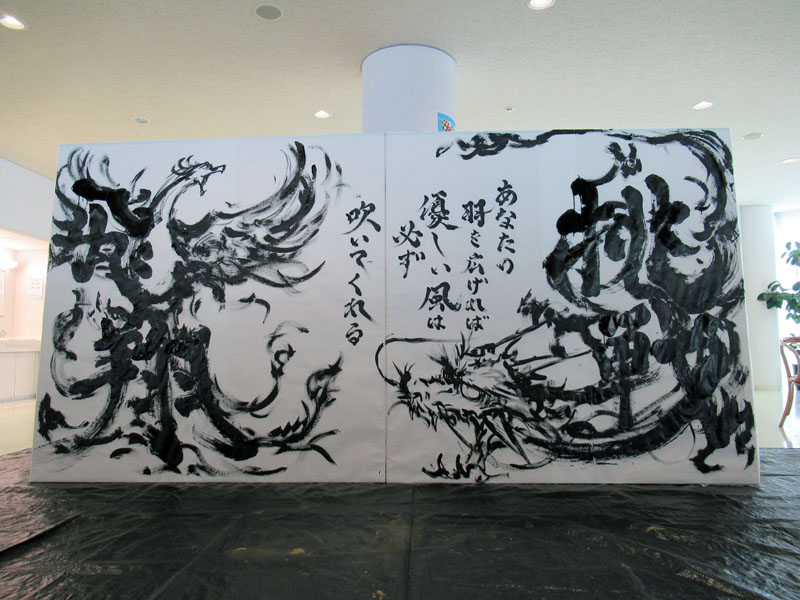 挑戦
あなたの
羽を広げれば
優しい風は
必ず
吹いてくれる
飛翔